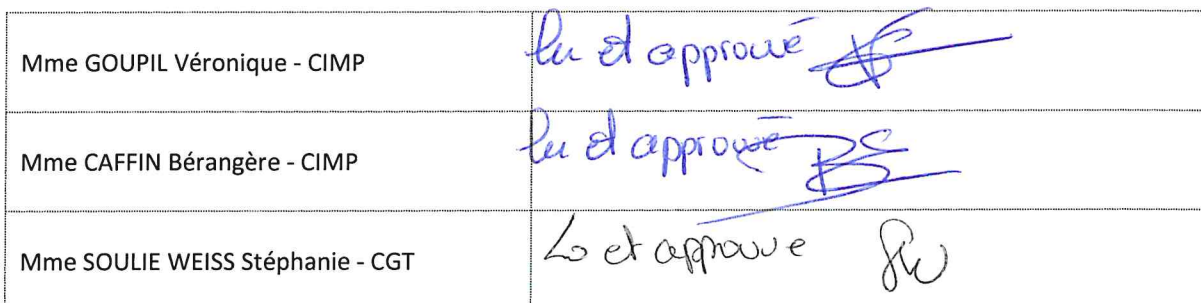 Mme GOUPIL Véronique - CIMP
lu et approuvé
Mme CAFFIN Bérangère - CIMP
lu et approuvé
Mme SOULIE WEISS Stéphanie - CGT
Lu et approuve SW